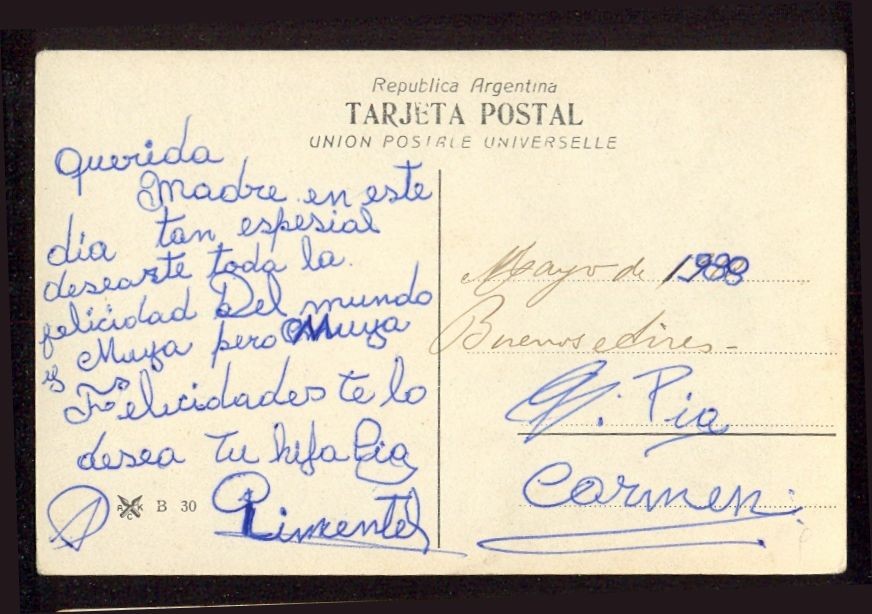 Republica Argentina
TARJETA POSTAL
UNION POSTALE UNIVERSELLE
Querida
Madre en este
día tan espesial
desearte toda la
felicidad Del mundo
y Muya pero Muya
Felicidades te lo
desea Tu hija Pia
Pimentel
B 30
Mayo de 1988
Buenos Aires -
Pia
Carmen